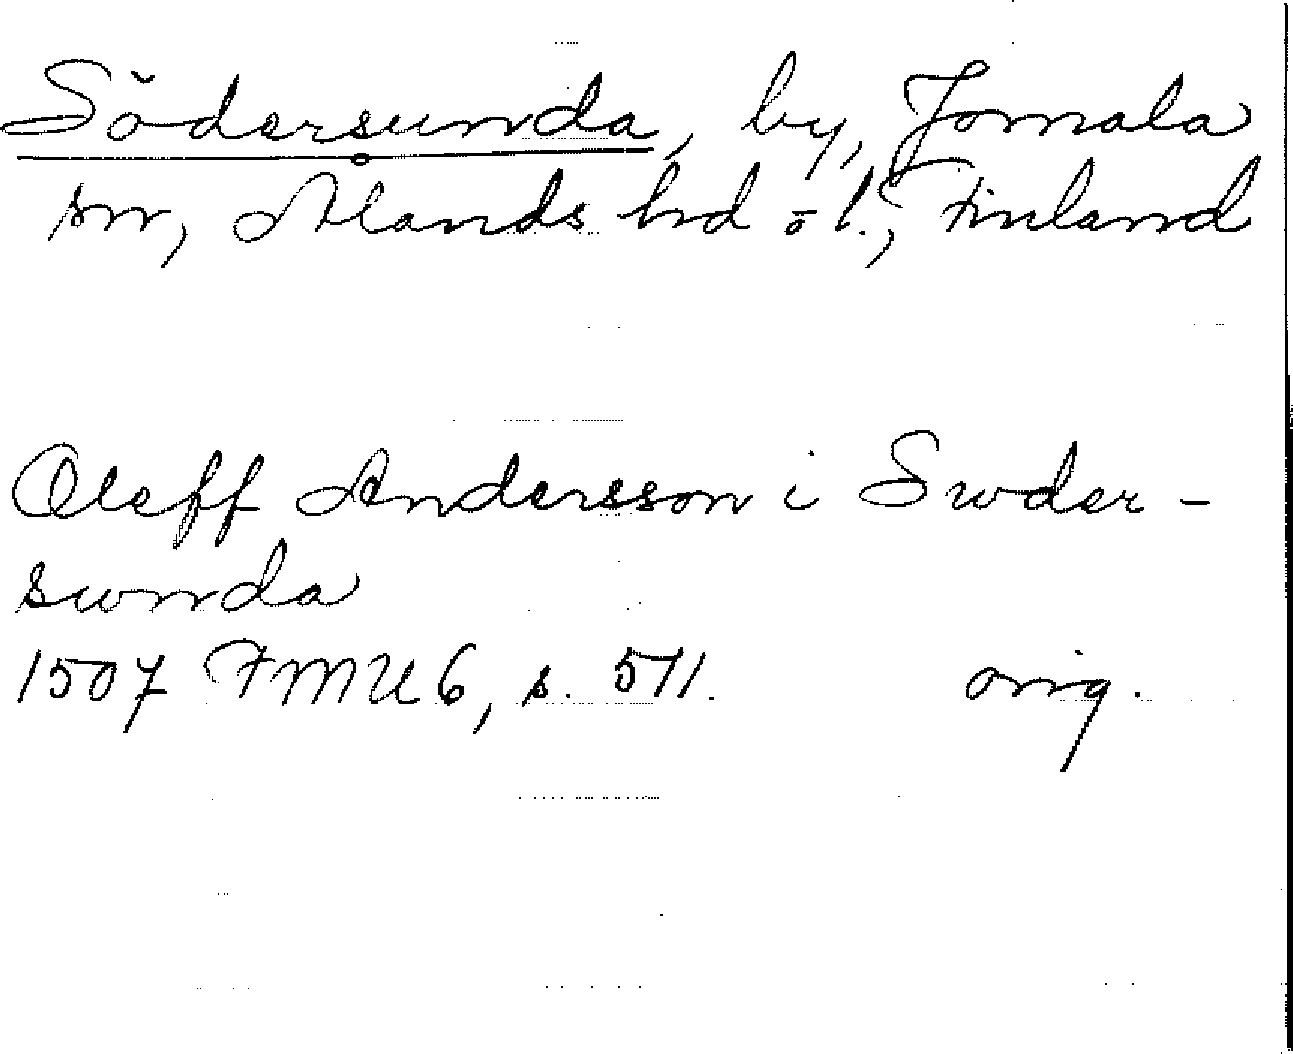 Södersunda, by, Jomala
sn, Ålands hd o. l., Finland
Oleff Andersson i Swder-
swnda
1507 FMU 6, s. 511. orig.